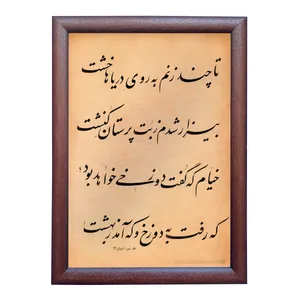 تا چند زنم به روی دریاها خشت
بیزار شدم ز بت پرستان کنشت
خیام که گفت دوزخی خواهد بود؟
که رفت به دوزخ و که آمد ز بهشت